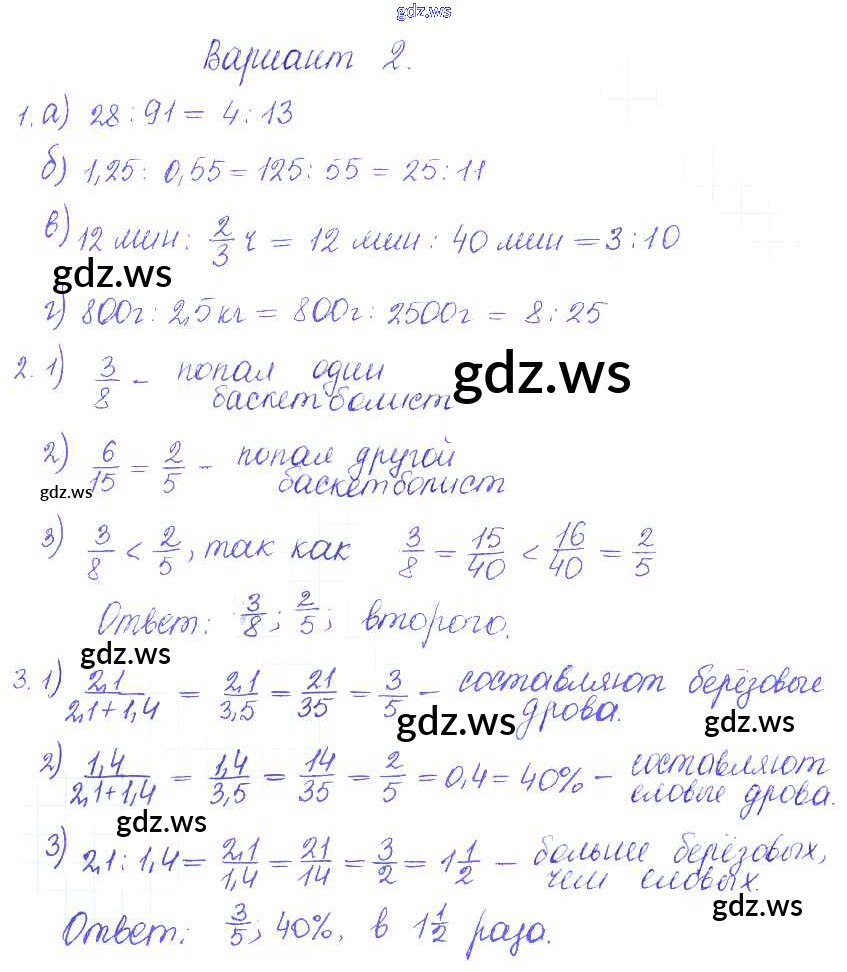 gdz.ws
Вариант 2.
1. а) 28 : 91 = 4 : 13
б) 1,25 : 0,55 = 125 : 55 = 25 : 11
в) 12 мин : 2/3 ч = 12 мин : 40 мин = 3 : 10
gdz.ws
г) 800г : 2,5 кг = 800г : 2500г = 8 : 25
2. 1) 3/8 - попал один
баскетболист
gdz.ws
2) 6/15 = 2/5 - попал другой
баскетболист
gdz.ws
3) 3/8 < 2/5, так как 3/8 = 15/40 < 16/40 = 2/5
Ответ: 3/8; 2/5; второго.
gdz.ws
3. 1) 2,1/(2,1+1,4) = 2,1/3,5 = 21/35 = 3/5 - составляют берёзовые
дрова.
gdz.ws gdz.ws
2) 1,4/(2,1+1,4) = 1,4/3,5 = 14/35 = 2/5 = 0,4 = 40% - составляют
еловые дрова.
gdz.ws
3) 2,1 : 1,4 = 2,1/1,4 = 21/14 = 3/2 = 1 1/2 - больше берёзовых,
чем еловых.
gdz.ws
Ответ: 3/5; 40%, в 1 1/2 раза.